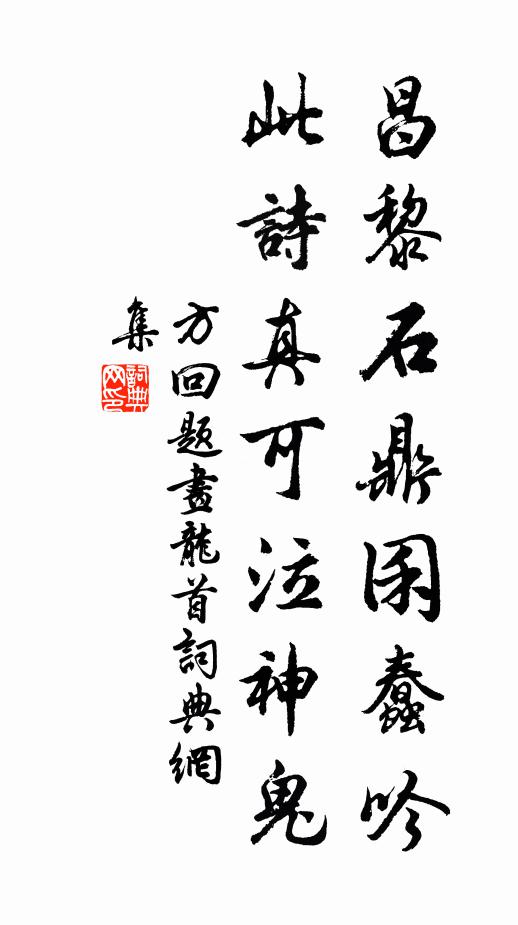 昌黎石鼎困蠢吟
此詩真可泣神鬼
方回題畫龍首詞典網
集
詞典网印